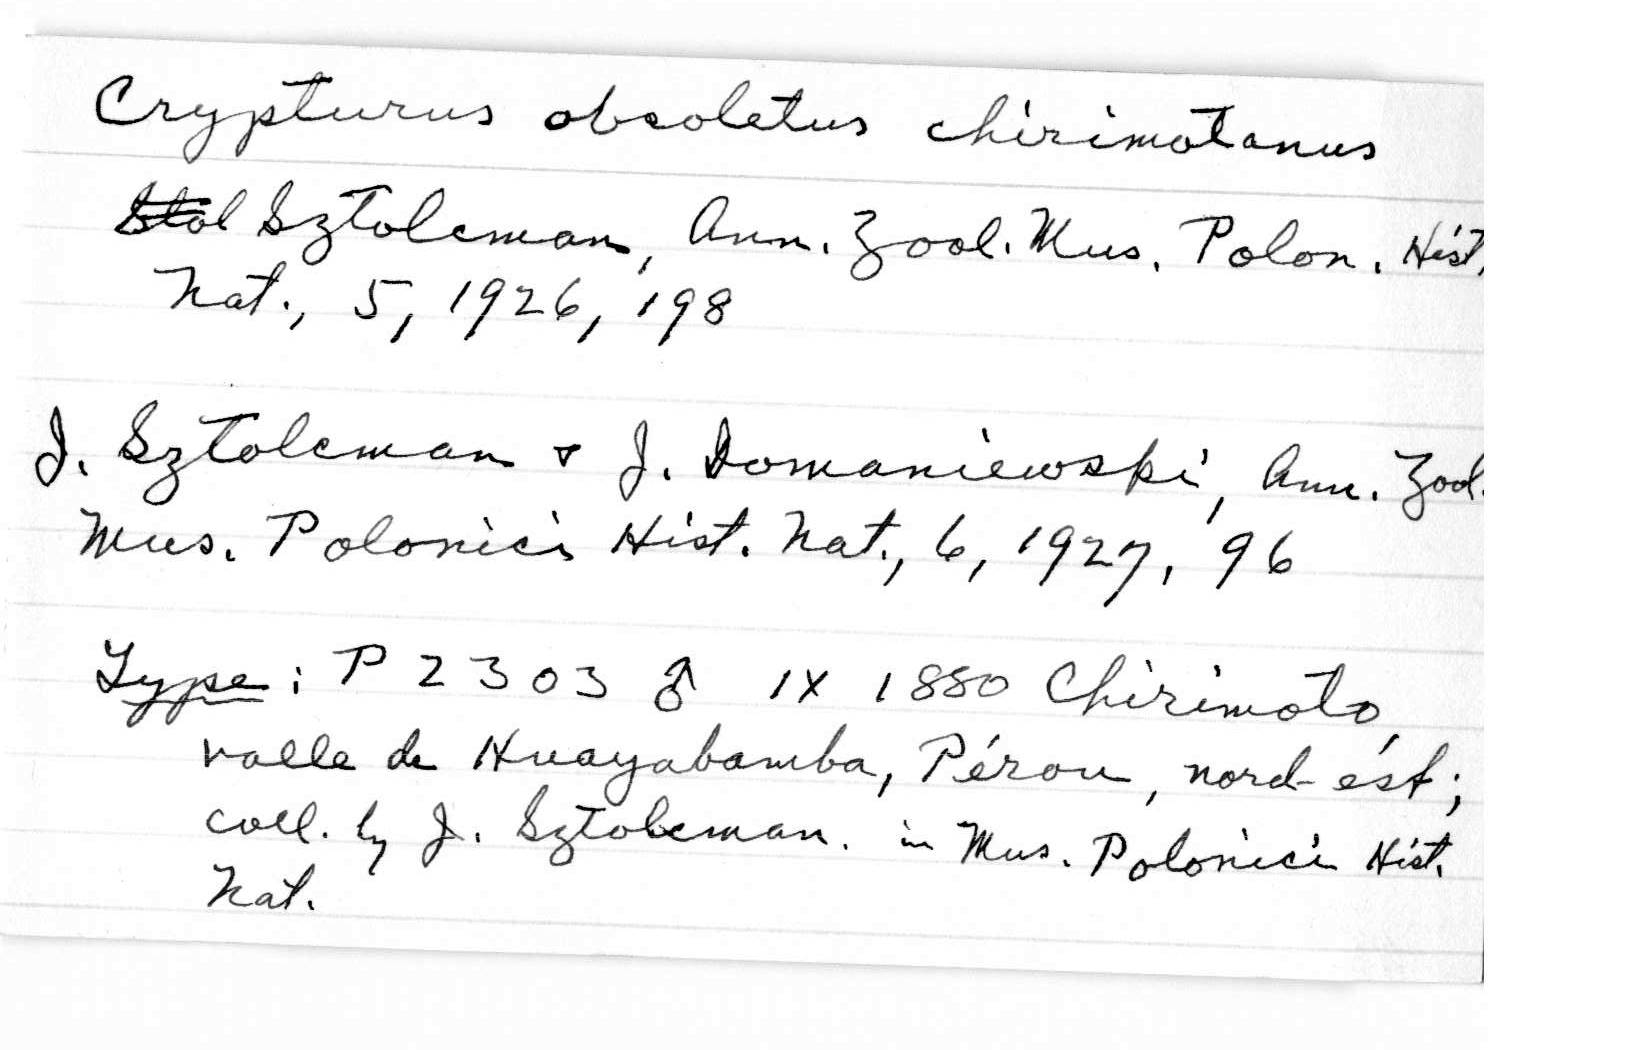 Crypturus obsoletus chirimotanus
Stol Sztolcman, Ann. Zool. Mus. Polon. Hist.
Nat., 5, 1926, 198
J. Sztolcman & J. Domaniewski, Ann. Zool.
Mus. Polonici Hist. Nat., 6, 1927, 96
Type: P 2303 ♂ IX 1880 Chirimoto,
valle de Huayabamba, Pérou, nord-ést;
coll. by J. Sztolcman. in Mus. Polonici Hist.
Nat.